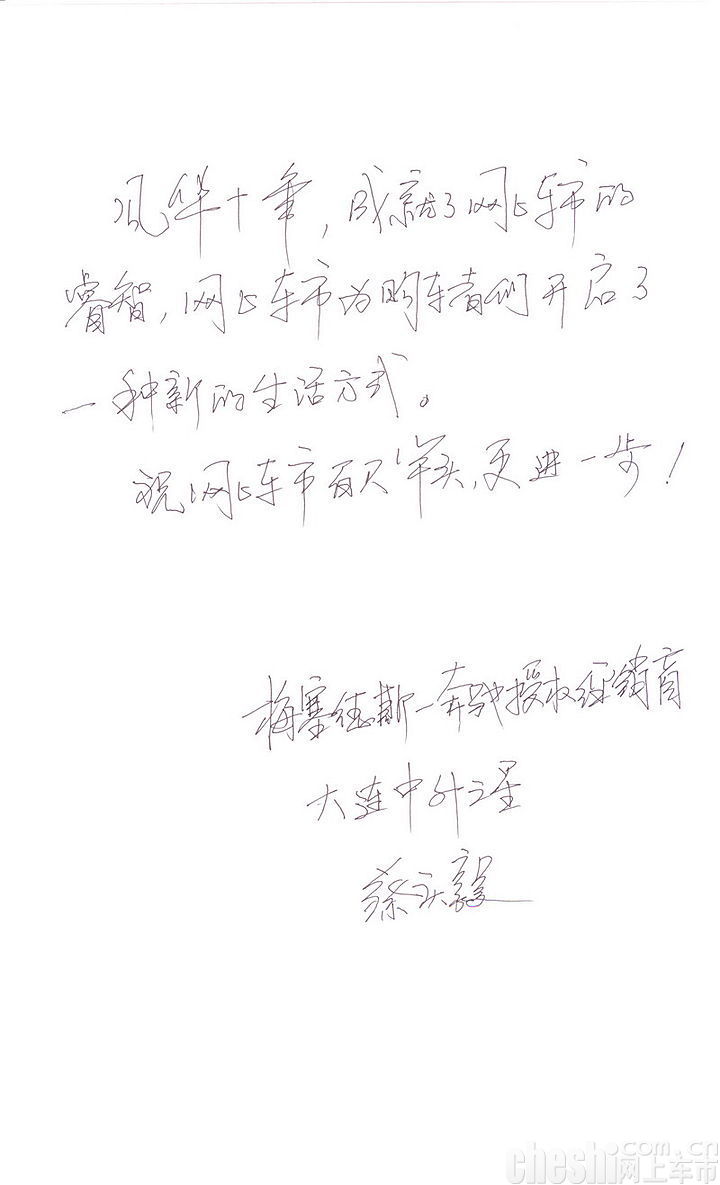 风华十年，成就了网上车市的
睿智，网上车市为购车者们开启了
一种新的生活方式。
祝网上车市百尺竿头，更进一步！
梅塞德斯-奔驰授权经销商
大连中升之星
蔡
毅
cheshi.com.cn
网上车市